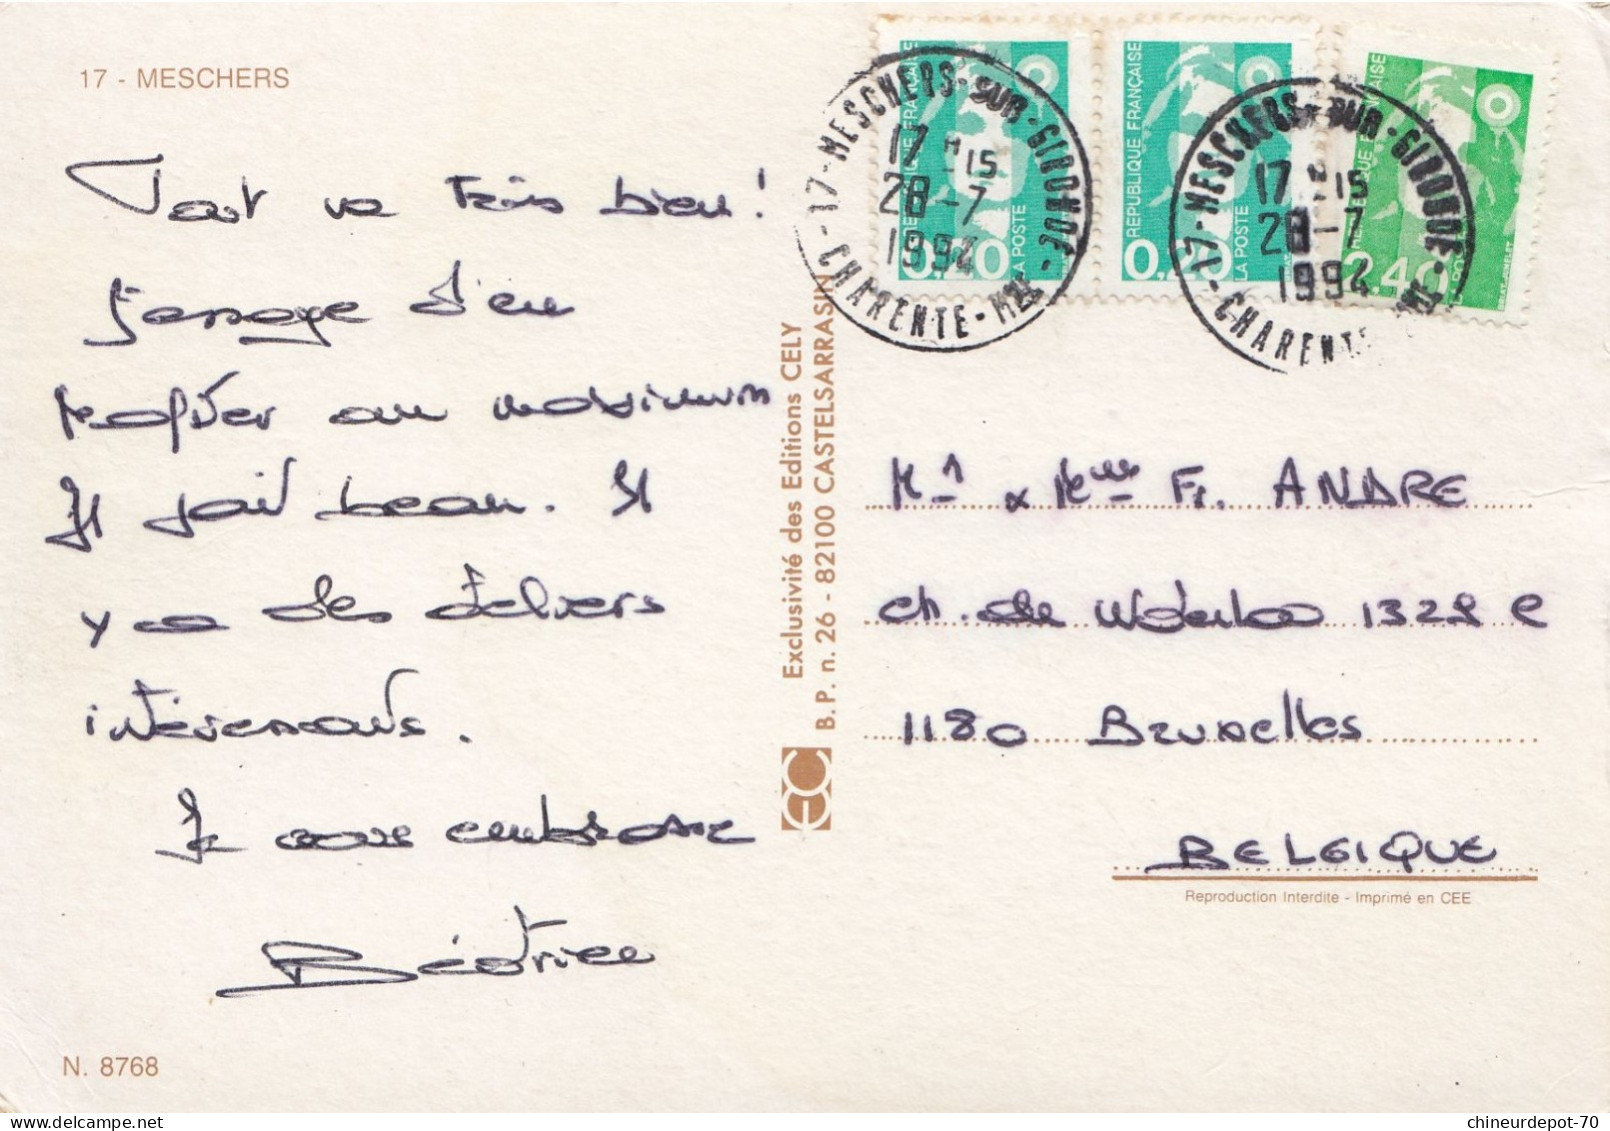 17 - MESCHERS
Tout va très bien !
J'essaye d'en
profiter au maximum
Il fait beau. Il
y a des ateliers
intéressants.
Je vous embrasse
Béatrice
N. 8768
Exclusivité des Editions CELY
B.P. n. 26 - 82100 CASTELSARRASIN
REPUBLIQUE FRANÇAISE
0,20
LA POSTE
2,40
17-MESCHERS-SUR-GIRONDE-
17 H 15
28-7
1994
CHARENTE-MME
17-MESCHERS-SUR-GIRONDE-
17 H 15
28-7
1994
CHARENTE-MME
Mr & Mme Fr. ANDRE
ch. de Waterloo 1329 C
1180 Bruxelles
BELGIQUE
Reproduction Interdite - Imprimé en CEE
chineurdepot-70